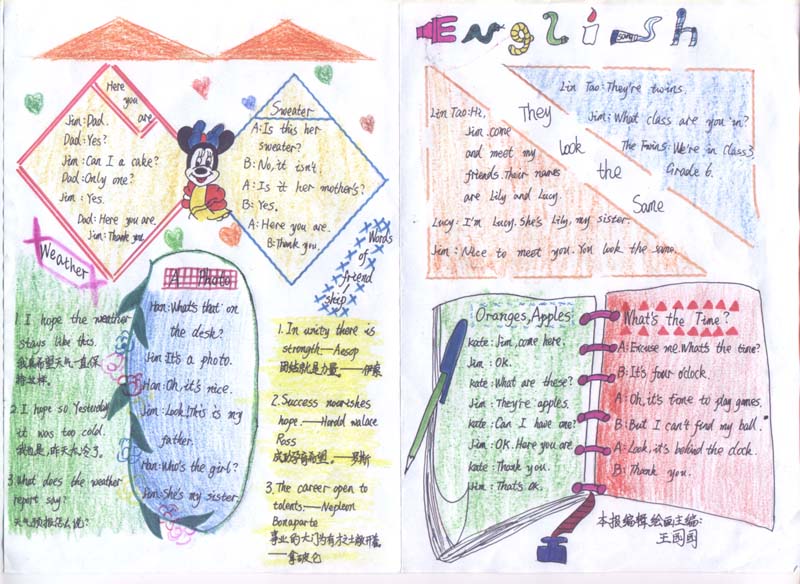 Here
you
are
Jim: Dad.
Dad: Yes?
Jim: Can I a cake?
Dad: Only one?
Jim: Yes.
Dad: Here you are.
Jim: Thank you.
Sweater
A: Is this her
sweater?
B: No, it isn't.
A: Is it her mother's?
B: Yes.
A: Here you are.
B: Thank you.
Weather
1. I hope the weather
stays like this.
我真希望天气一直保
持这样。
2. I hope so. Yesterday
it was too cold.
我也是,昨天太冷了。
3. What does the weather
report say?
天气预报怎么说?
A Photo
Han: What's that on
the desk?
Jim: It's a photo.
Han: Oh, it's nice.
Jim: Look! This is my
father.
Han: Who's the girl?
Jim: She's my sister.
Words
of
friend
ship
1. In unity there is
strength.——Aesop
团结就是力量。——伊索
2. Success nourishes
hope.——Harold walace
Ross
成功孕育希望。——罗斯
3. The career open to
talents——Nepleon
Bonaparte
事业的大门为有才之士敞开着。
——拿破仑
English
They
look
the
Same
Lin Tao: Hi,
Jim. come
and meet my
friends. Their names
are Lily and Lucy.
Lucy: I'm Lucy. She's Lily, my sister.
Jim: Nice to meet you. You look the same.
Lin Tao: They're twins.
Jim: What class are you in?
The Twins: We're in class 3,
Grade 6.
Oranges, Apples
kate: Jim, come here.
Jim: OK.
kate: What are these?
Jim: They're apples.
kate: Can I have one?
Jim: OK. Here you are
kate: Thank you.
Jim: That's OK.
What's the Time?
A: Excuse me. What's the time?
B: It's four o'clock.
A: Oh, it's time to play games.
B: But I can't find my ball.
A: Look, it's behind the clock.
B: Thank you.
本报编辑绘画主编: